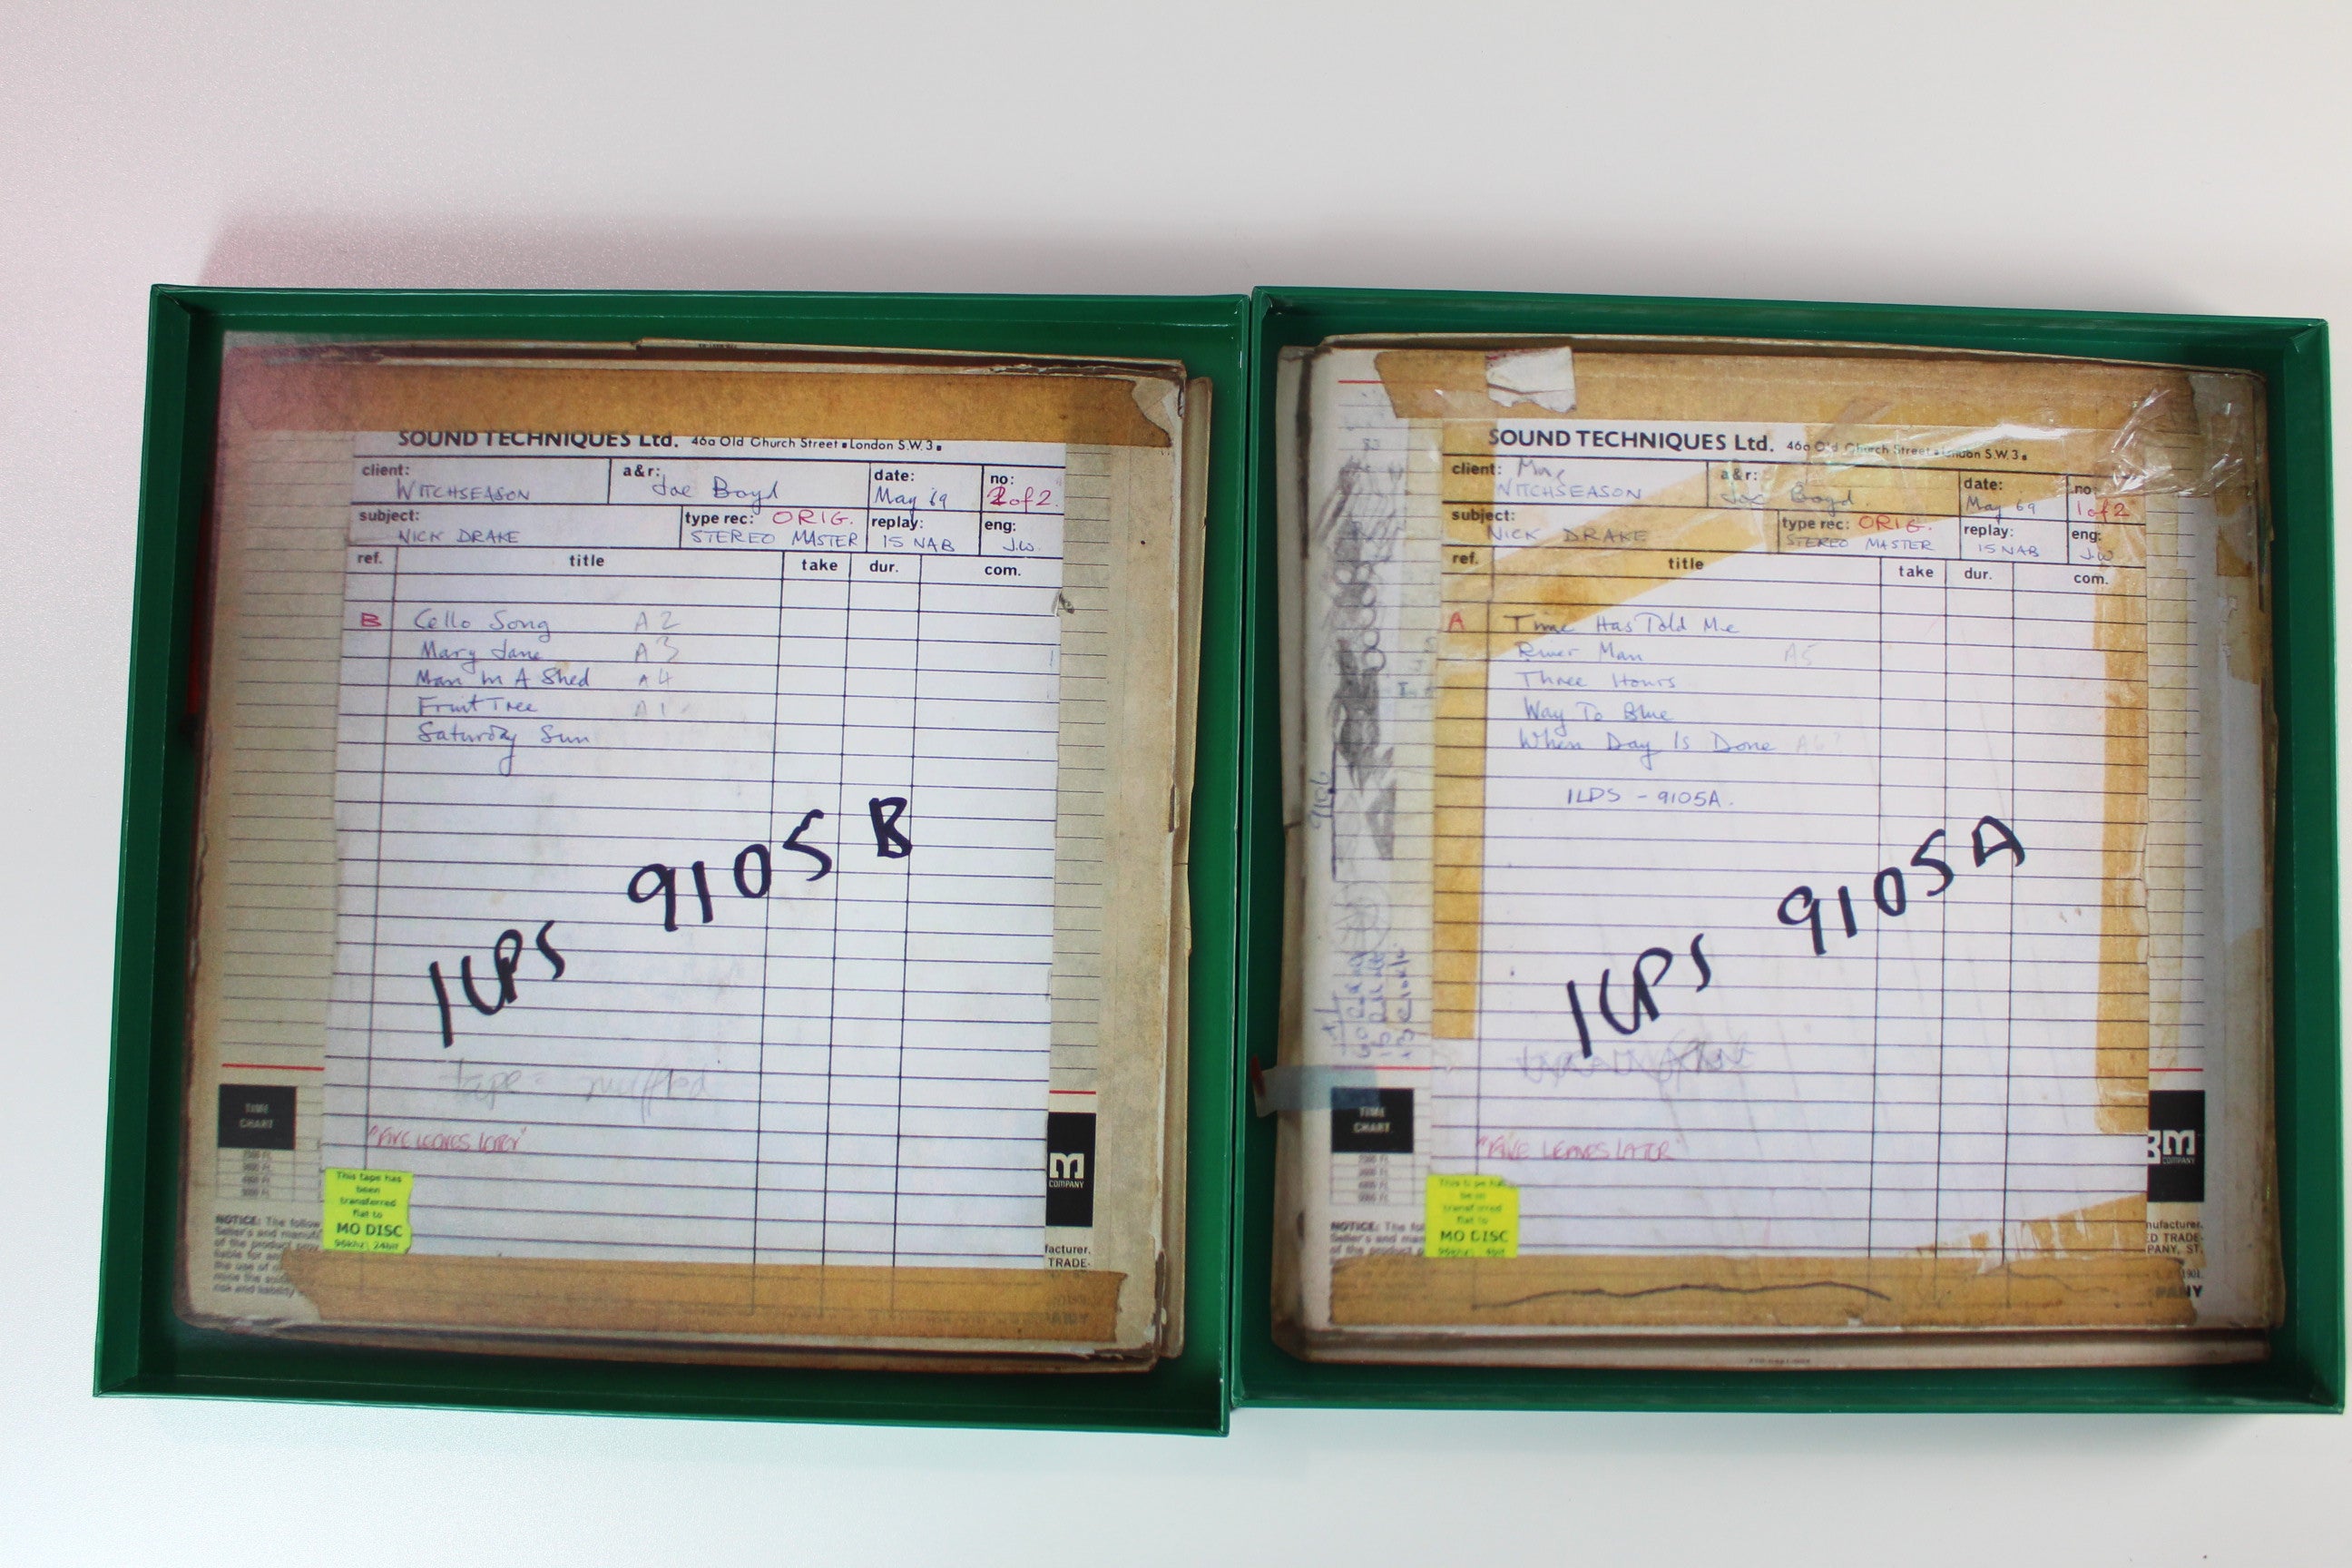 SOUND TECHNIQUES Ltd. 46a Old Church Street • London S.W.3.
client: WITCHSEASON
a&r: Joe Boyd
date: May 69
no: 2 of 2.
subject: NICK DRAKE
type rec: ORIG. STEREO MASTER
replay: 15 NAB
eng: J.W.
ref. title take dur. com.
B Cello Song A2
Mary Jane A3
Man In A Shed A4
Fruit Tree A1
Saturday Sun
ILPS 9105 B
tape = muffled
"FIVE LEAVES LATER"
TIME CHART
This tape has
been
transferred
flat to
MO DISC
96khz 24bit
M
COMPANY
NOTICE: The follow
Seller's and manuf
of the product
facturer.
TRADE-
SOUND TECHNIQUES Ltd. 46a Old Church Street • London S.W.3.
client: WITCHSEASON
a&r: Joe Boyd
date: May 69
no: 1 of 2
subject: NICK DRAKE
type rec: ORIG. STEREO MASTER
replay: 15 NAB
eng: J.W.
ref. title take dur. com.
A Time Has Told Me
River Man A5
Three Hours
Way To Blue
When Day Is Done A6?
ILPS - 9105A.
ILPS 9105 A
"FIVE LEAVES LATER"
9156
TIME CHART
This tape has
been
transferred
flat to
MO DISC
3M
COMPANY
NOTICE: The fol
Seller's and man
of the product
nufacturer.
ED TRADE-
PANY, ST.
PANY